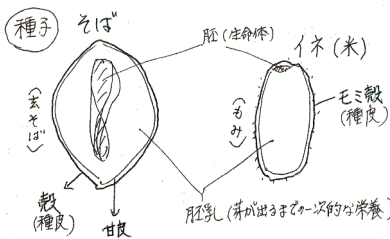 種子
そば
胚(生命体)
イネ(米)
〈玄そば〉
〈もみ〉
モミ殻
(種皮)
殻
(種皮)
甘皮
胚乳(芽が出るまでの一次的な栄養)